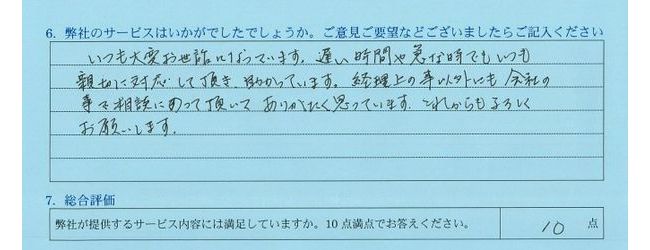 6. 弊社のサービスはいかがでしたでしょうか。ご意見ご要望などございましたらご記入ください
いつも大変お世話になっています。遅い時間や急な時でもいつも
親切に対応して頂き、助かっています。経理上の事以外にも会社の
事で相談にのって頂いてありがたく思っています。これからもよろしく
お願いします。
7. 総合評価
弊社が提供するサービス内容には満足していますか。10点満点でお答えください。 10 点